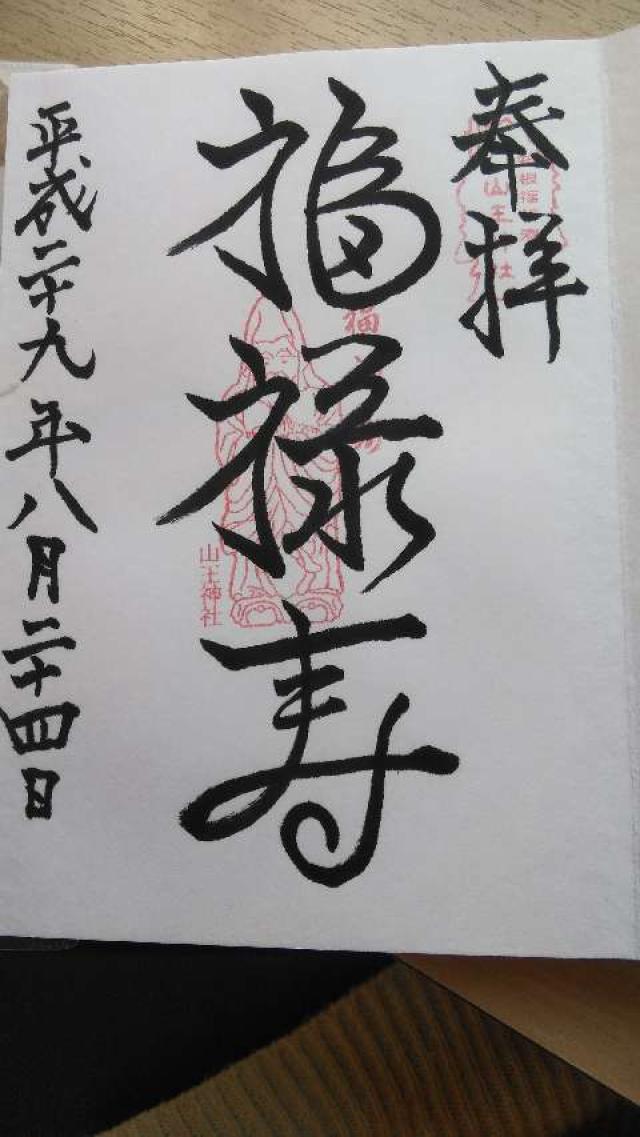 奉拝
山王
社
福禄寿
福
山王神社
平成二十九年八月二十四日